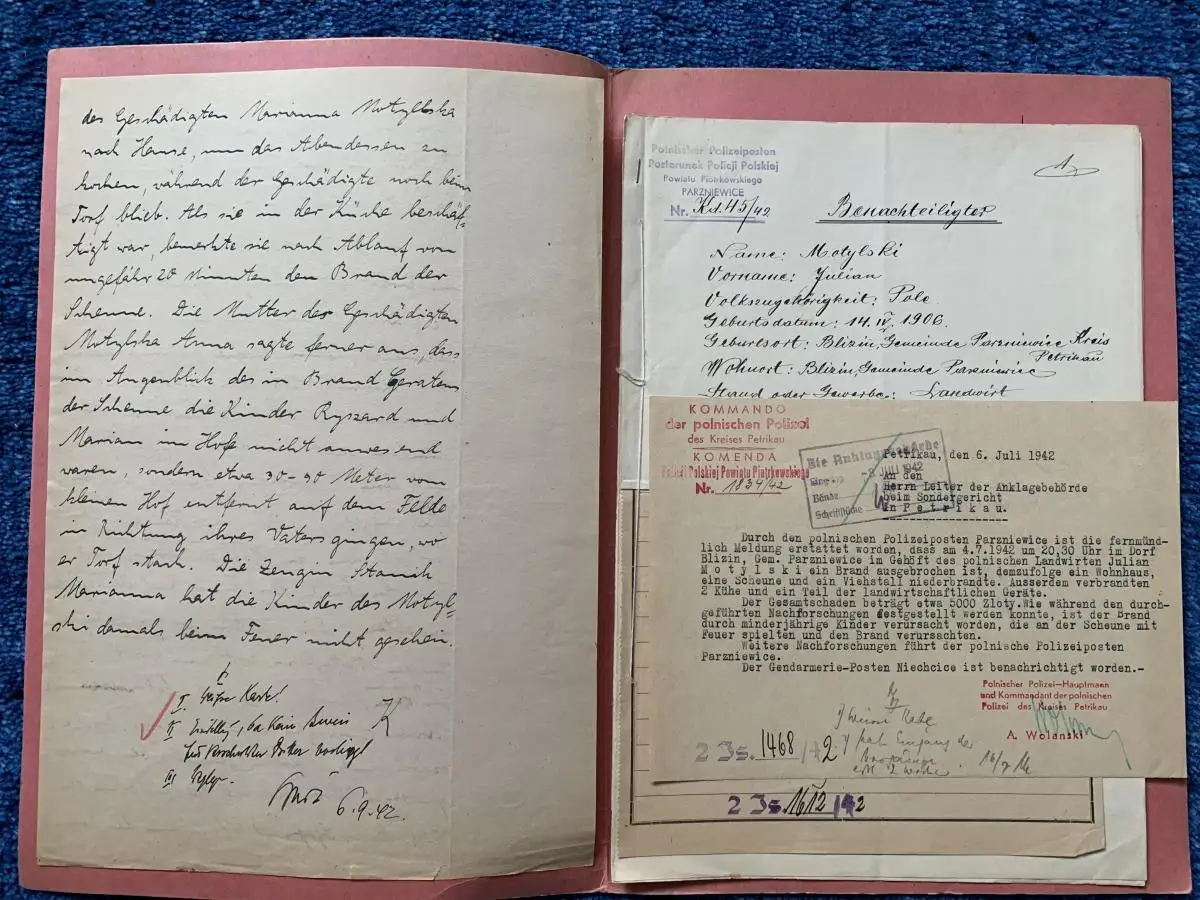 des Geschädigten Marianna Motylska
nach Hause, um das Abendessen zu
kochen, während der Geschädigte noch beim
Torf blieb. Als sie in der Küche beschäf-
tigt war, bemerkte sie nach Ablauf von
ungefähr 20 Minuten den Brand der
Scheune. Die Mutter des Geschädigten
Motylska Anna sagte ferner aus, dass
im Augenblick des in Brand Geratens
der Scheune die Kinder Ryszard und
Marian im Hofe nicht anwesend
waren, sondern etwa Meter vom
kleinen Hof entfernt auf dem Felde
in Richtung ihres Vaters gingen, wo
er Torf stach. Die Zeugin Stanik
Marianna hat die Kinder des Motyl-
ski damals beim Feuer nicht gesehen.
I
II
III
6.9.42.
Polnischer Polizeiposten
Posterunek Policji Polskiej
Powiatu Piotrkowskiego
PARZNIEWICE
Nr. 45/42
1
Benachteiligter
Name: Motylski
Vorname: Julian
Volkszugehörigkeit: Pole
Geburtsdatum: 14. IV. 1906.
Geburtsort: Blizin, Gemeinde Parzniewice Kreis
Petrikau
Wohnort: Blizin, Gemeinde Parzniewice
Stand oder Gewerbe: Landwirt
KOMMANDO
der polnischen Polizei
des Kreises Petrikau
KOMENDA
Policji Polskiej Powiatu Piotrkowskiego
Nr. 1834/42
Die Anklagebehörde
JULI 1942
Schriftstücke
Petrikau, den 6. Juli 1942
An den
Herrn Leiter der Anklagebehörde
beim Sondergericht
in Petrikau.
Durch den polnischen Polizeiposten Parzniewice ist die fernmünd-
lich Meldung erstattet worden, dass am 4.7.1942 um 20,30 Uhr im Dorf
Blizin, Gem. Parzniewice im Gehöft des polnischen Landwirten Julian
M o t y l s k i ein Brand ausgebrochen ist, demzufolge ein Wohnhaus,
eine Scheune und ein Viehstall niederbrannte. Ausserden verbrannten
2 Kühe und ein Teil der landwirtschaftlichen Geräte.
Der Gesamtschaden beträgt etwa 5000 Zloty. Wie während den durch-
geführten Nachforschungen festgestellt werden konnte, ist der Brand
durch minderjährige Kinder verursacht worden, die an der Scheune mit
Feuer spielten und den Brand verursachten.
Weitere Nachforschungen führt der polnische Polizeiposten
Parzniewice.
Der Gendarmerie-Posten Niechcice ist benachrichtigt worden.-
Polnischer Polizei-Hauptmann
und Kommandant der polnischen
Polizei des Kreises Petrikau
A. Wolanski
2 Js. 1468/42
2 Js. 1612/42